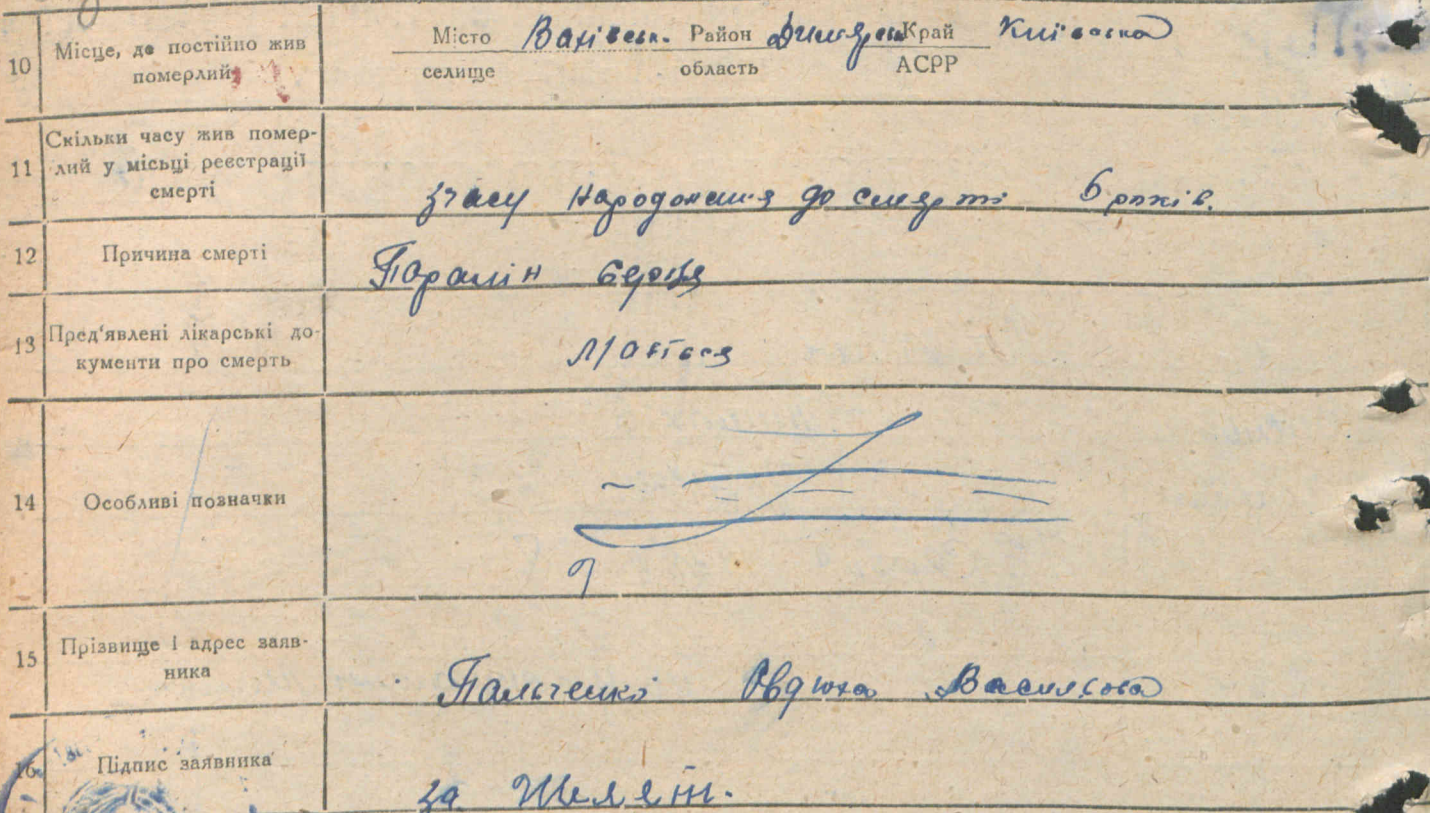 10 Місце, де постійно жив померлий
Місто Вахівськ. Район Димерськ Край Київська
селище область АСРР
11 Скільки часу жив помер-
лий у місьці реєстрації
смерті
зчасу народоження до смерти 6 років.
12 Причина смерті
Параліч серця
13 Пред'явлені лікарські до-
кументи про смерть
14 Особливі позначки
15 Прізвище і адрес заяв-
ника
Пальченко Овдюха Василівна
16 Підпис заявника
за